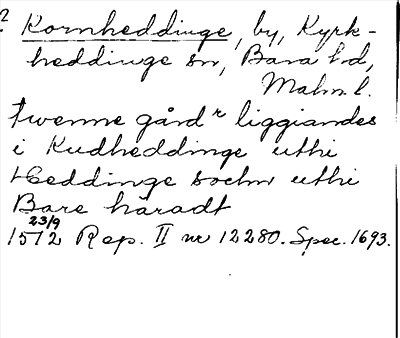 ? Kornheddinge, by, Kyrk-
heddinge sn, Bara hd,
Malm. l.
Twenne gård^r liggiandes
i Kudheddinge uthi
Heddinge sochn uthi
Bare häradt
23/9
1512 Rep. II nr 12280. Spec. 1693.